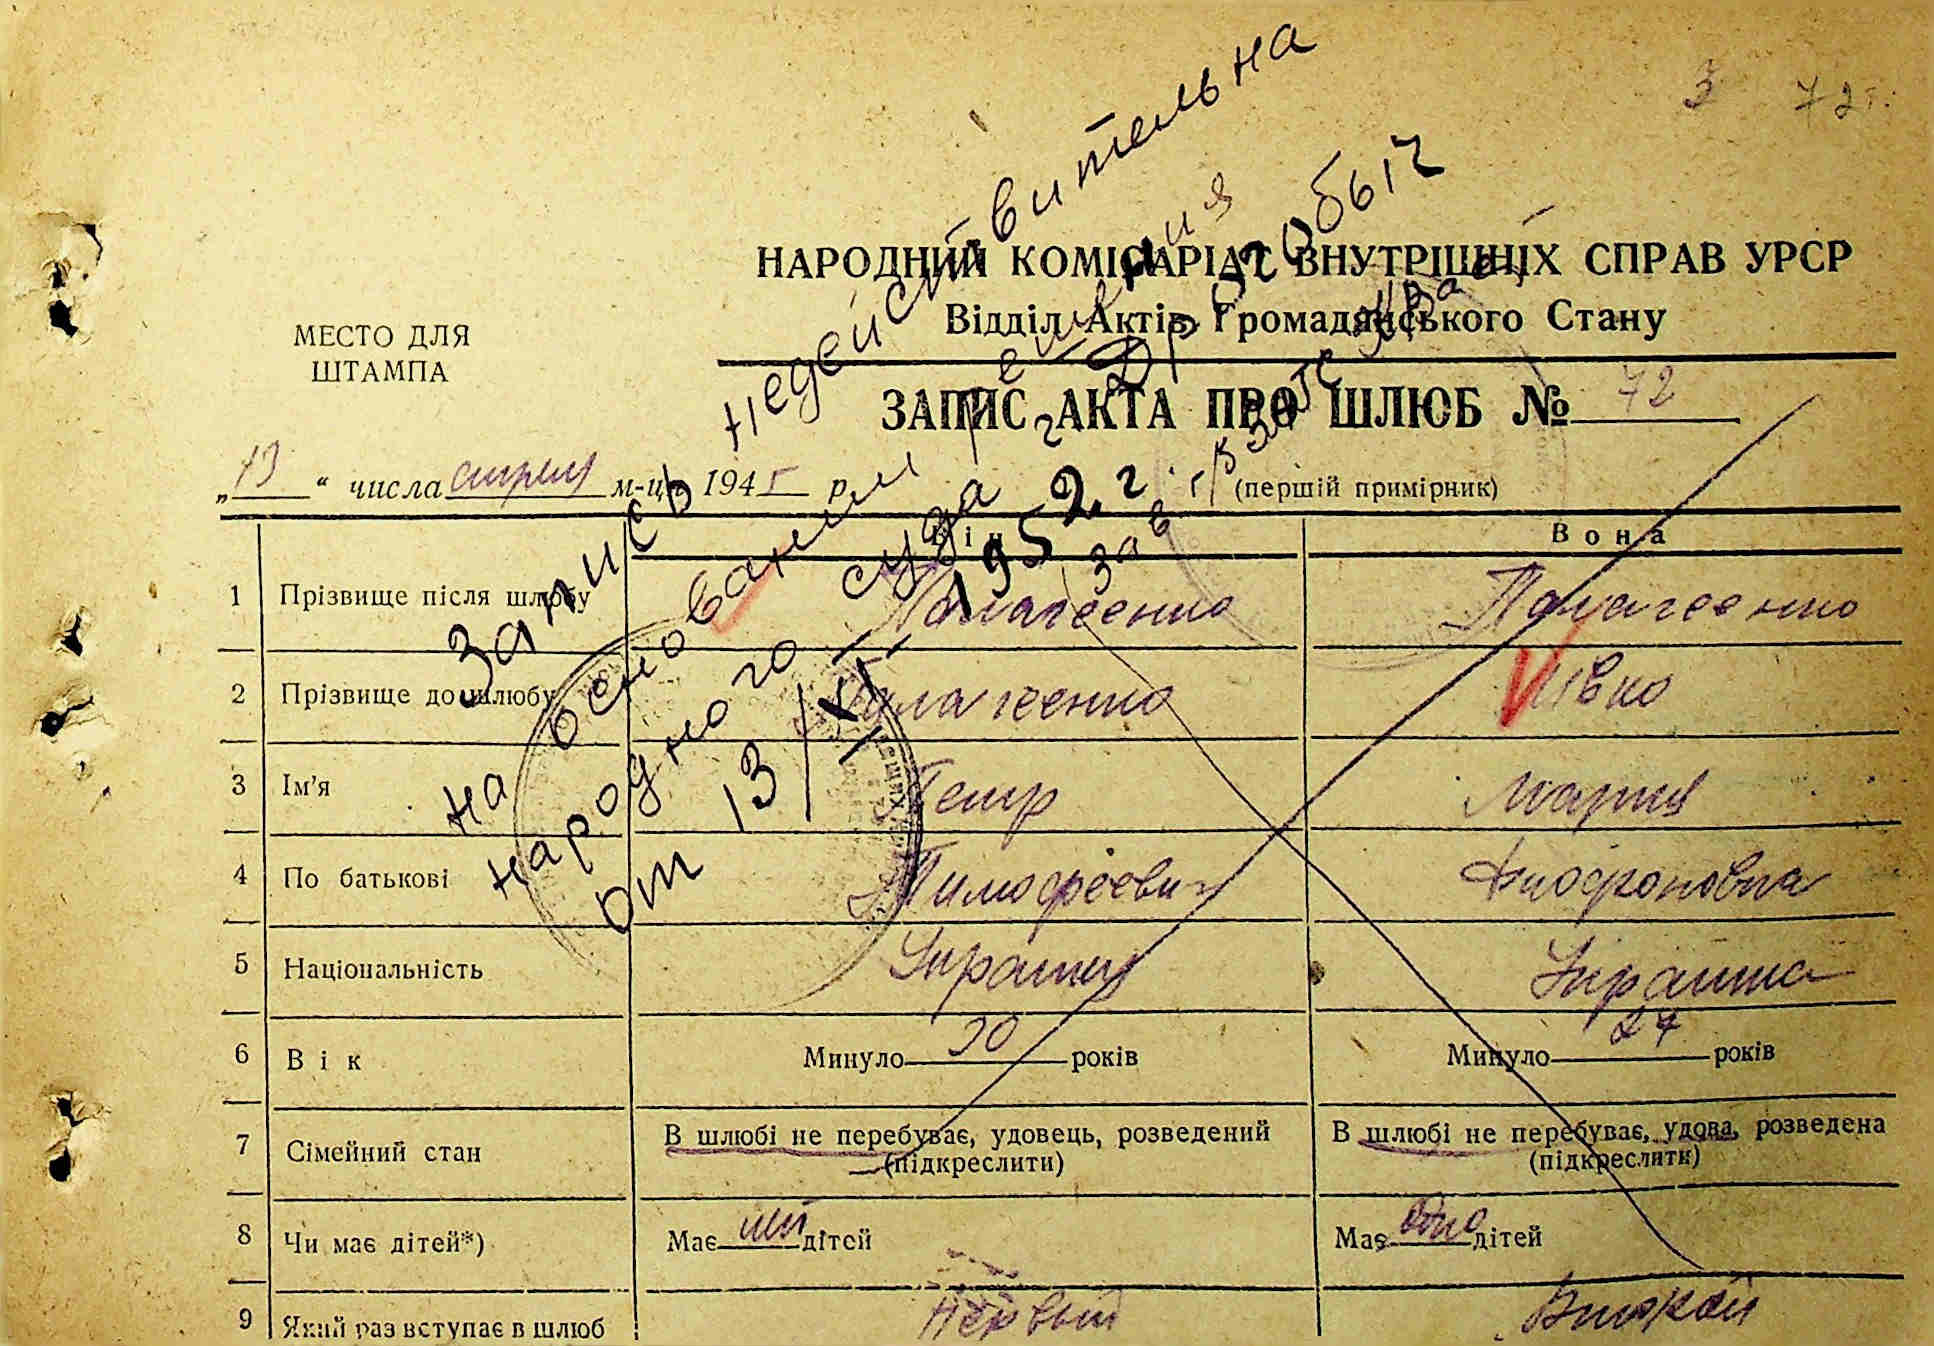 3 72 г.
НАРОДНИЙ КОМІСАРІАТ ВНУТРІШНІХ СПРАВ УРСР
Відділ Актів Громадянського Стану
МЕСТО ДЛЯ
ШТАМПА
ЗАПИС АКТА ПРО ШЛЮБ № 72
„13“ числа апреля м-ця 1945 р.
(перший примірник)
Запись недействительна
на основании решения
народного суда г. Дрогобыч
от 13/VI 1952 г.
Зав. гр ЗАГС
Він Вона
1 Прізвище після шлюбу Палагеенко Палагеенко
2 Прізвище до шлюбу Палагеенко Пивко
3 Ім'я Петр Мария
4 По батькові Тимофеевич
5 Національність Украинец Украинка
6 Вік Минуло 30 років Минуло 27 років
7 Сімейний стан В шлюбі не перебуває, удовець, розведений В шлюбі не перебуває, удова, розведена
(підкреслити) (підкреслити)
8 Чи має дітей*) Має нет дітей Має одно дітей
9 Який раз вступає в шлюб Первый Второй